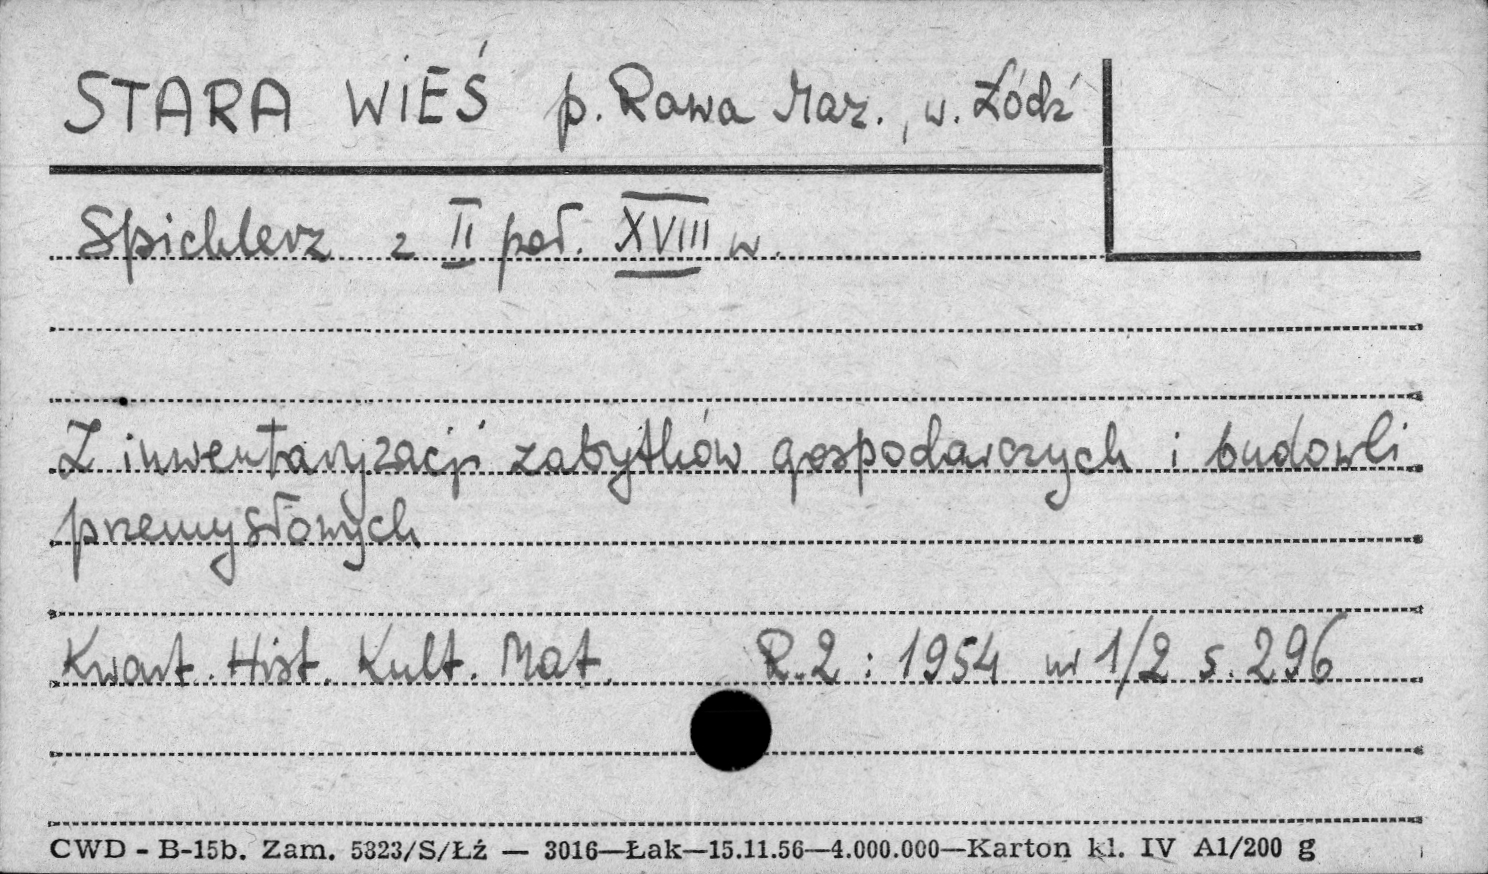 STARA WIEŚ p. Rawa Maz., w. Łódź
Spichlerz z II poł. XVIII w.
Z inwentaryzacji zabytków gospodarczych i budowli
przemysłowych
Kwart. Hist. Kult. Mat. R.2 : 1954 nr 1/2 s. 296
CWD - B-15b. Zam. 5323/S/Łź — 3016—Łak—15.11.56—4.000.000—Karton kl. IV A1/200 g